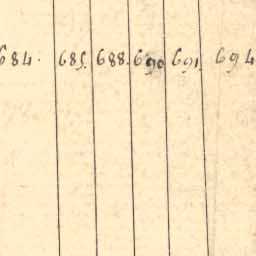 684. 685. 688. 690 691. 694